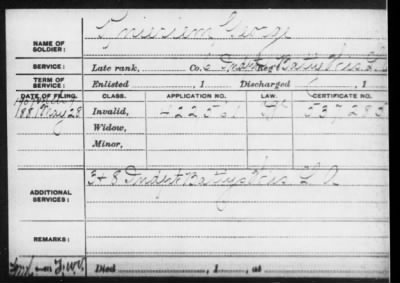 George
NAME OF SOLDIER:
SERVICE: Late rank, Co. 6 Indpt Reg't Batty Wis L. A.
TERM OF SERVICE: Enlisted , 1 Discharged , 1
DATE OF FILING. CLASS. APPLICATION NO. LAW. CERTIFICATE NO.
1881 May 28 Invalid, 537283
Widow,
Minor,
ADDITIONAL SERVICES: 3 & 8 Indpt Batty Wis L A
REMARKS:
Died , 1 , at